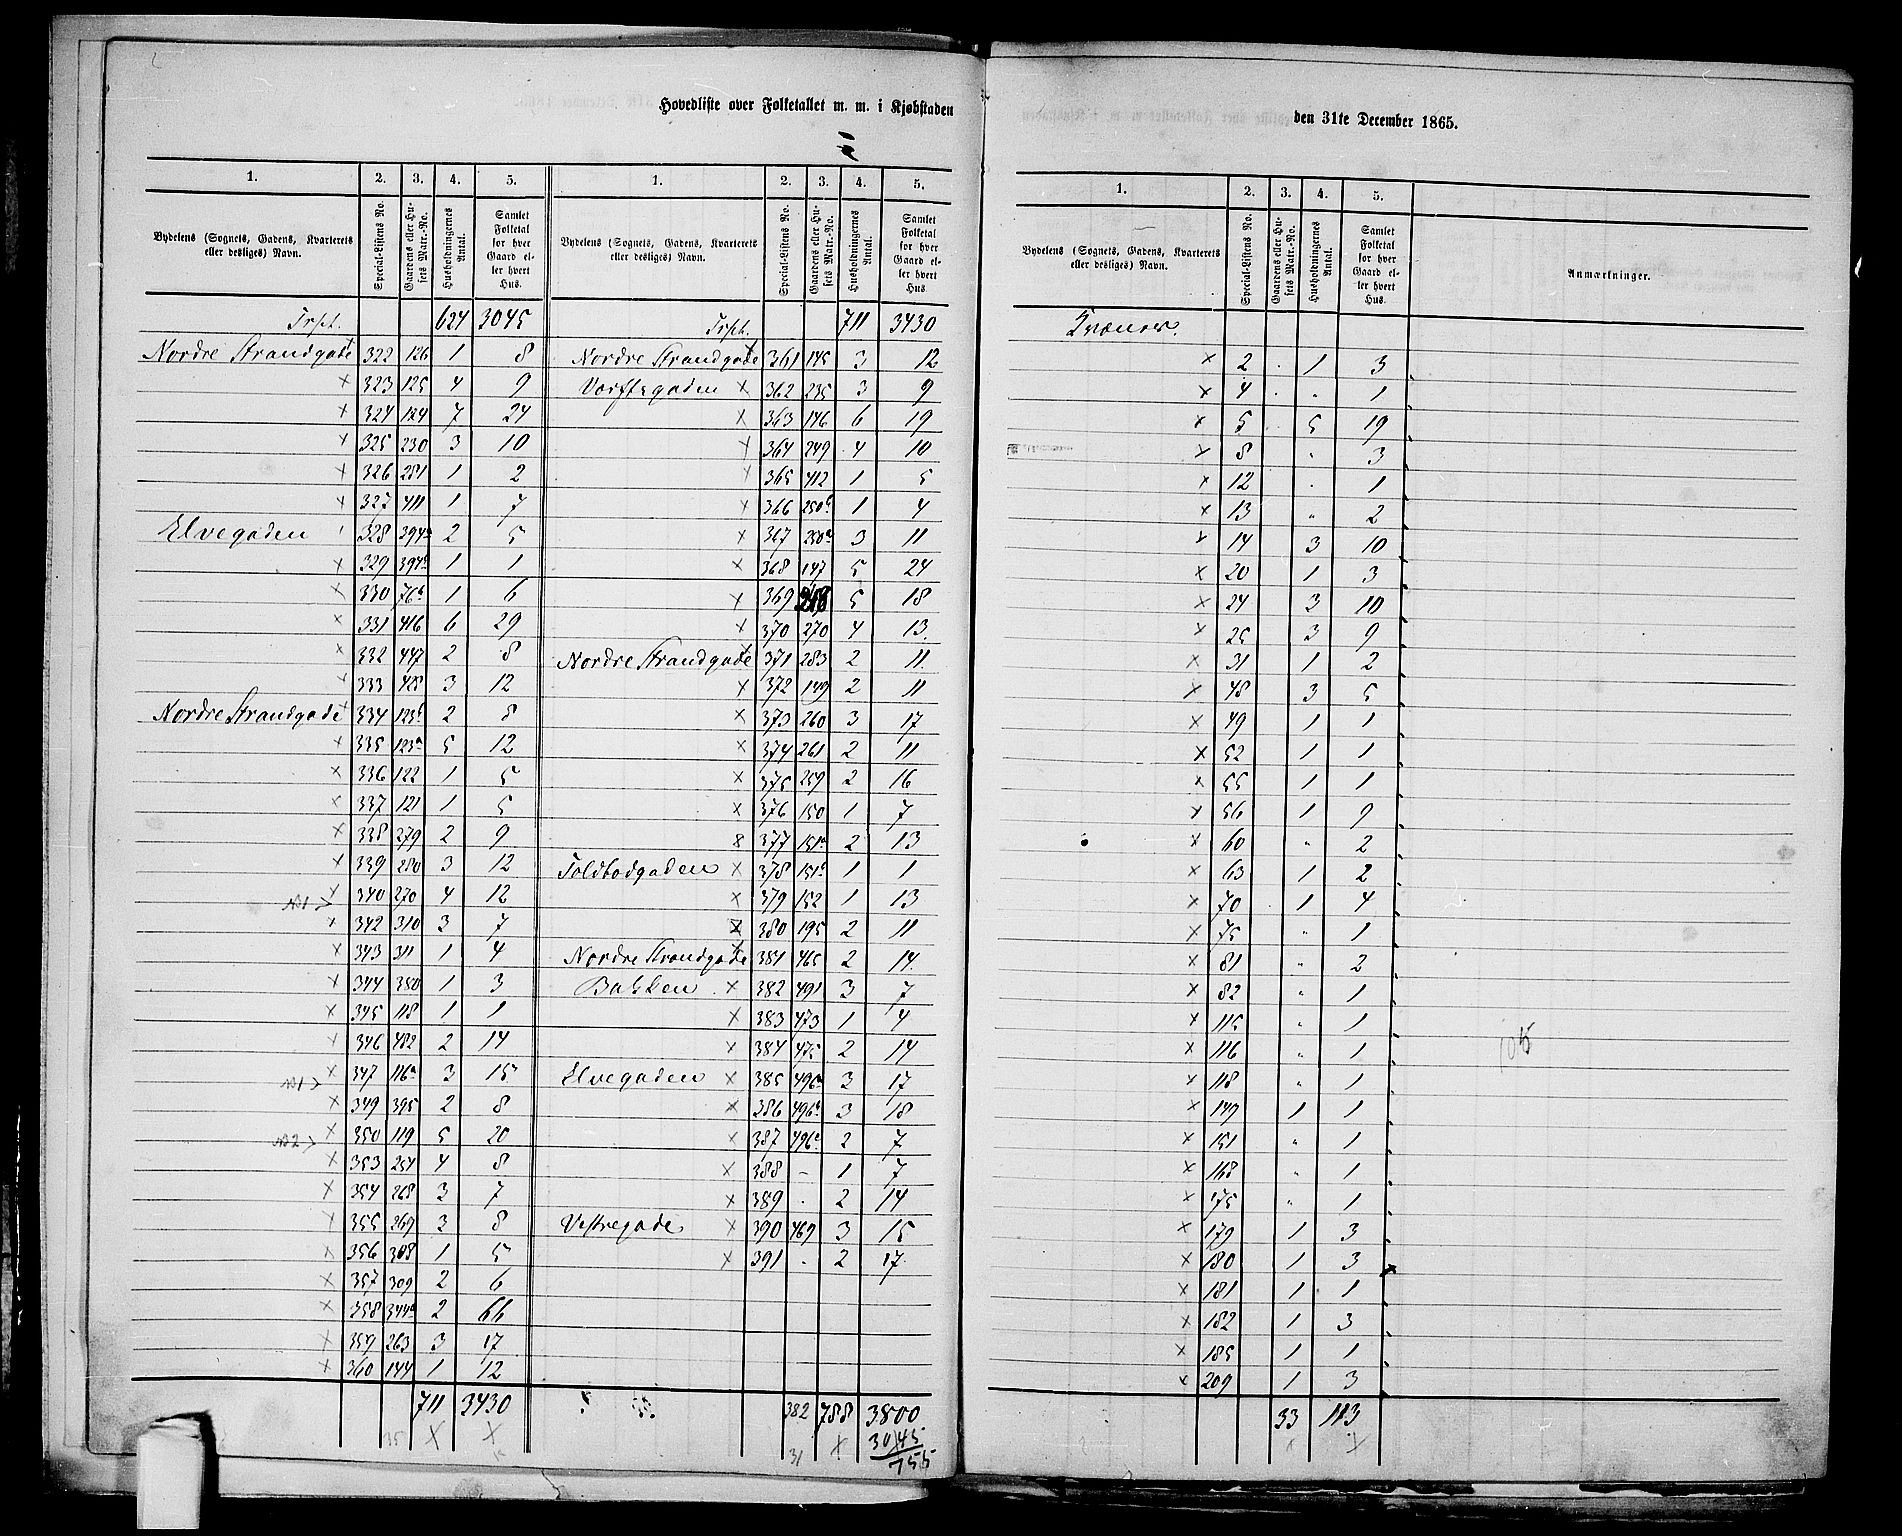 Hovedliste over Folketallet m. m. i Kjøbstaden
den 31te December 1865.
1. 2. 3. 4. 5. 1. 2. 3. 4. 5.
Bydelens (Sognets, Gadens, Kvarterets eller desliges) Navn. Special-Listens No. Gaardens eller Husets Matr.-No. Husholdningernes Antal. Samlet Folketal for hver Gaard eller hvert Hus. Bydelens (Sognets, Gadens, Kvarterets eller desliges) Navn. Special-Listens No. Gaardens eller Husets Matr.-No. Husholdningernes Antal. Samlet Folketal for hver Gaard eller hvert Hus.
Trspt. 624 3045 Trspt. 711 3430
Nordre Strandgade 322 126 1 8 Nordre Strandgade 361 145 3 12
x 323 125 4 9 Værftsgaden x 362 235 3 9
x 324 124 7 24 x 363 146 6 19
x 325 230 3 10 x 364 249 4 10
x 326 281 1 2 365 412 1 5
x 327 411 1 7 x 366 250b 1 4
Elvegaden 328 394a 2 5 x 367 250a 3 11
x 329 394b 1 1 x 368 147 5 24
x 330 76b 1 6 x 369 5 18
x 331 416 6 29 x 370 270 4 13.
x 332 447 2 8 Nordre Strandgade 371 283 2 11.
333 428 3 12 x 372 149 2 11
Nordre Strandgade 334 123b 2 8 x 373 260 3 17
x 335 123a 5 12 x 374 261 2 11
x 336 122 1 5 x 375 259 2 16
x 337 121 1 5 x 376 150 1 7
x 338 279 2 9 377 151a 2 13
x 339 280 3 12 Toldbodgaden x 378 151b 1 1
No1> x 340 270 4 12 x 379 152 1 13
x 342 310 3 7 380 195 2 11
x 343 311 1 4 Nordre Strandgade 381 465 2 14.
x 344 350 1 3 Bakken x 382 491 3 7
x 345 118 1 1 x 383 473 1 4
346 482 2 14 x 384 475 2 14
No1> x 347 116a 3 15 Elvegaden x 385 496a 3 17
x 349 395 2 8 x 386 496b 3 18
No2> x 350 119 5 20 x 387 496c 2 7
x 353 254 4 8 x 388 - 1 7
x 354 268 3 7 x 389 . 2 14
355 269 3 8 Vestregade x 390 469 3 15
x 356 308 1 5 x 391 . 2 17
x 357 309 2 6
x 358 344a 2 66
x 359 263 3 17
x 360 144 1 12
711 3430 382 788 3800
35 x x 31 x 3045
755
1. 2. 3. 4. 5.
Bydelens (Sognets, Gadens, Kvarterets eller desliges) Navn. Special-Listens No. Gaardens eller Husets Matr.-No. Husholdningernes Antal. Samlet Folketal for hver Gaard eller hvert Hus. Anmærkninger.
Kvæner.
x 2 1 3
x 4 " 1
x 5 5 19
x 8 " 3
x 12 " 1
x 13 " 2
x 14 3 10
x 20 1 3
x 24 3 10
x 25 3 9
x 31 1 2
x 48 3 5
x 49 1 1
x 52 1 1
x 55 1 1
x 56 1 9
x 60 " 2
x 63 1 2
x 70 1 4
x 75 " 1
x 81 " 2
x 82 " 1
x 115 " 1
x 116 " 1
105
x 118 " 1
x 149 1 1
x 151 " 1
x 168 " 1
x 175 " 1
x 179 1 3
x 180 1 3
x 181 1 1
x 182 1 3
x 185 1 1
x 209 1 3
33 113
x x